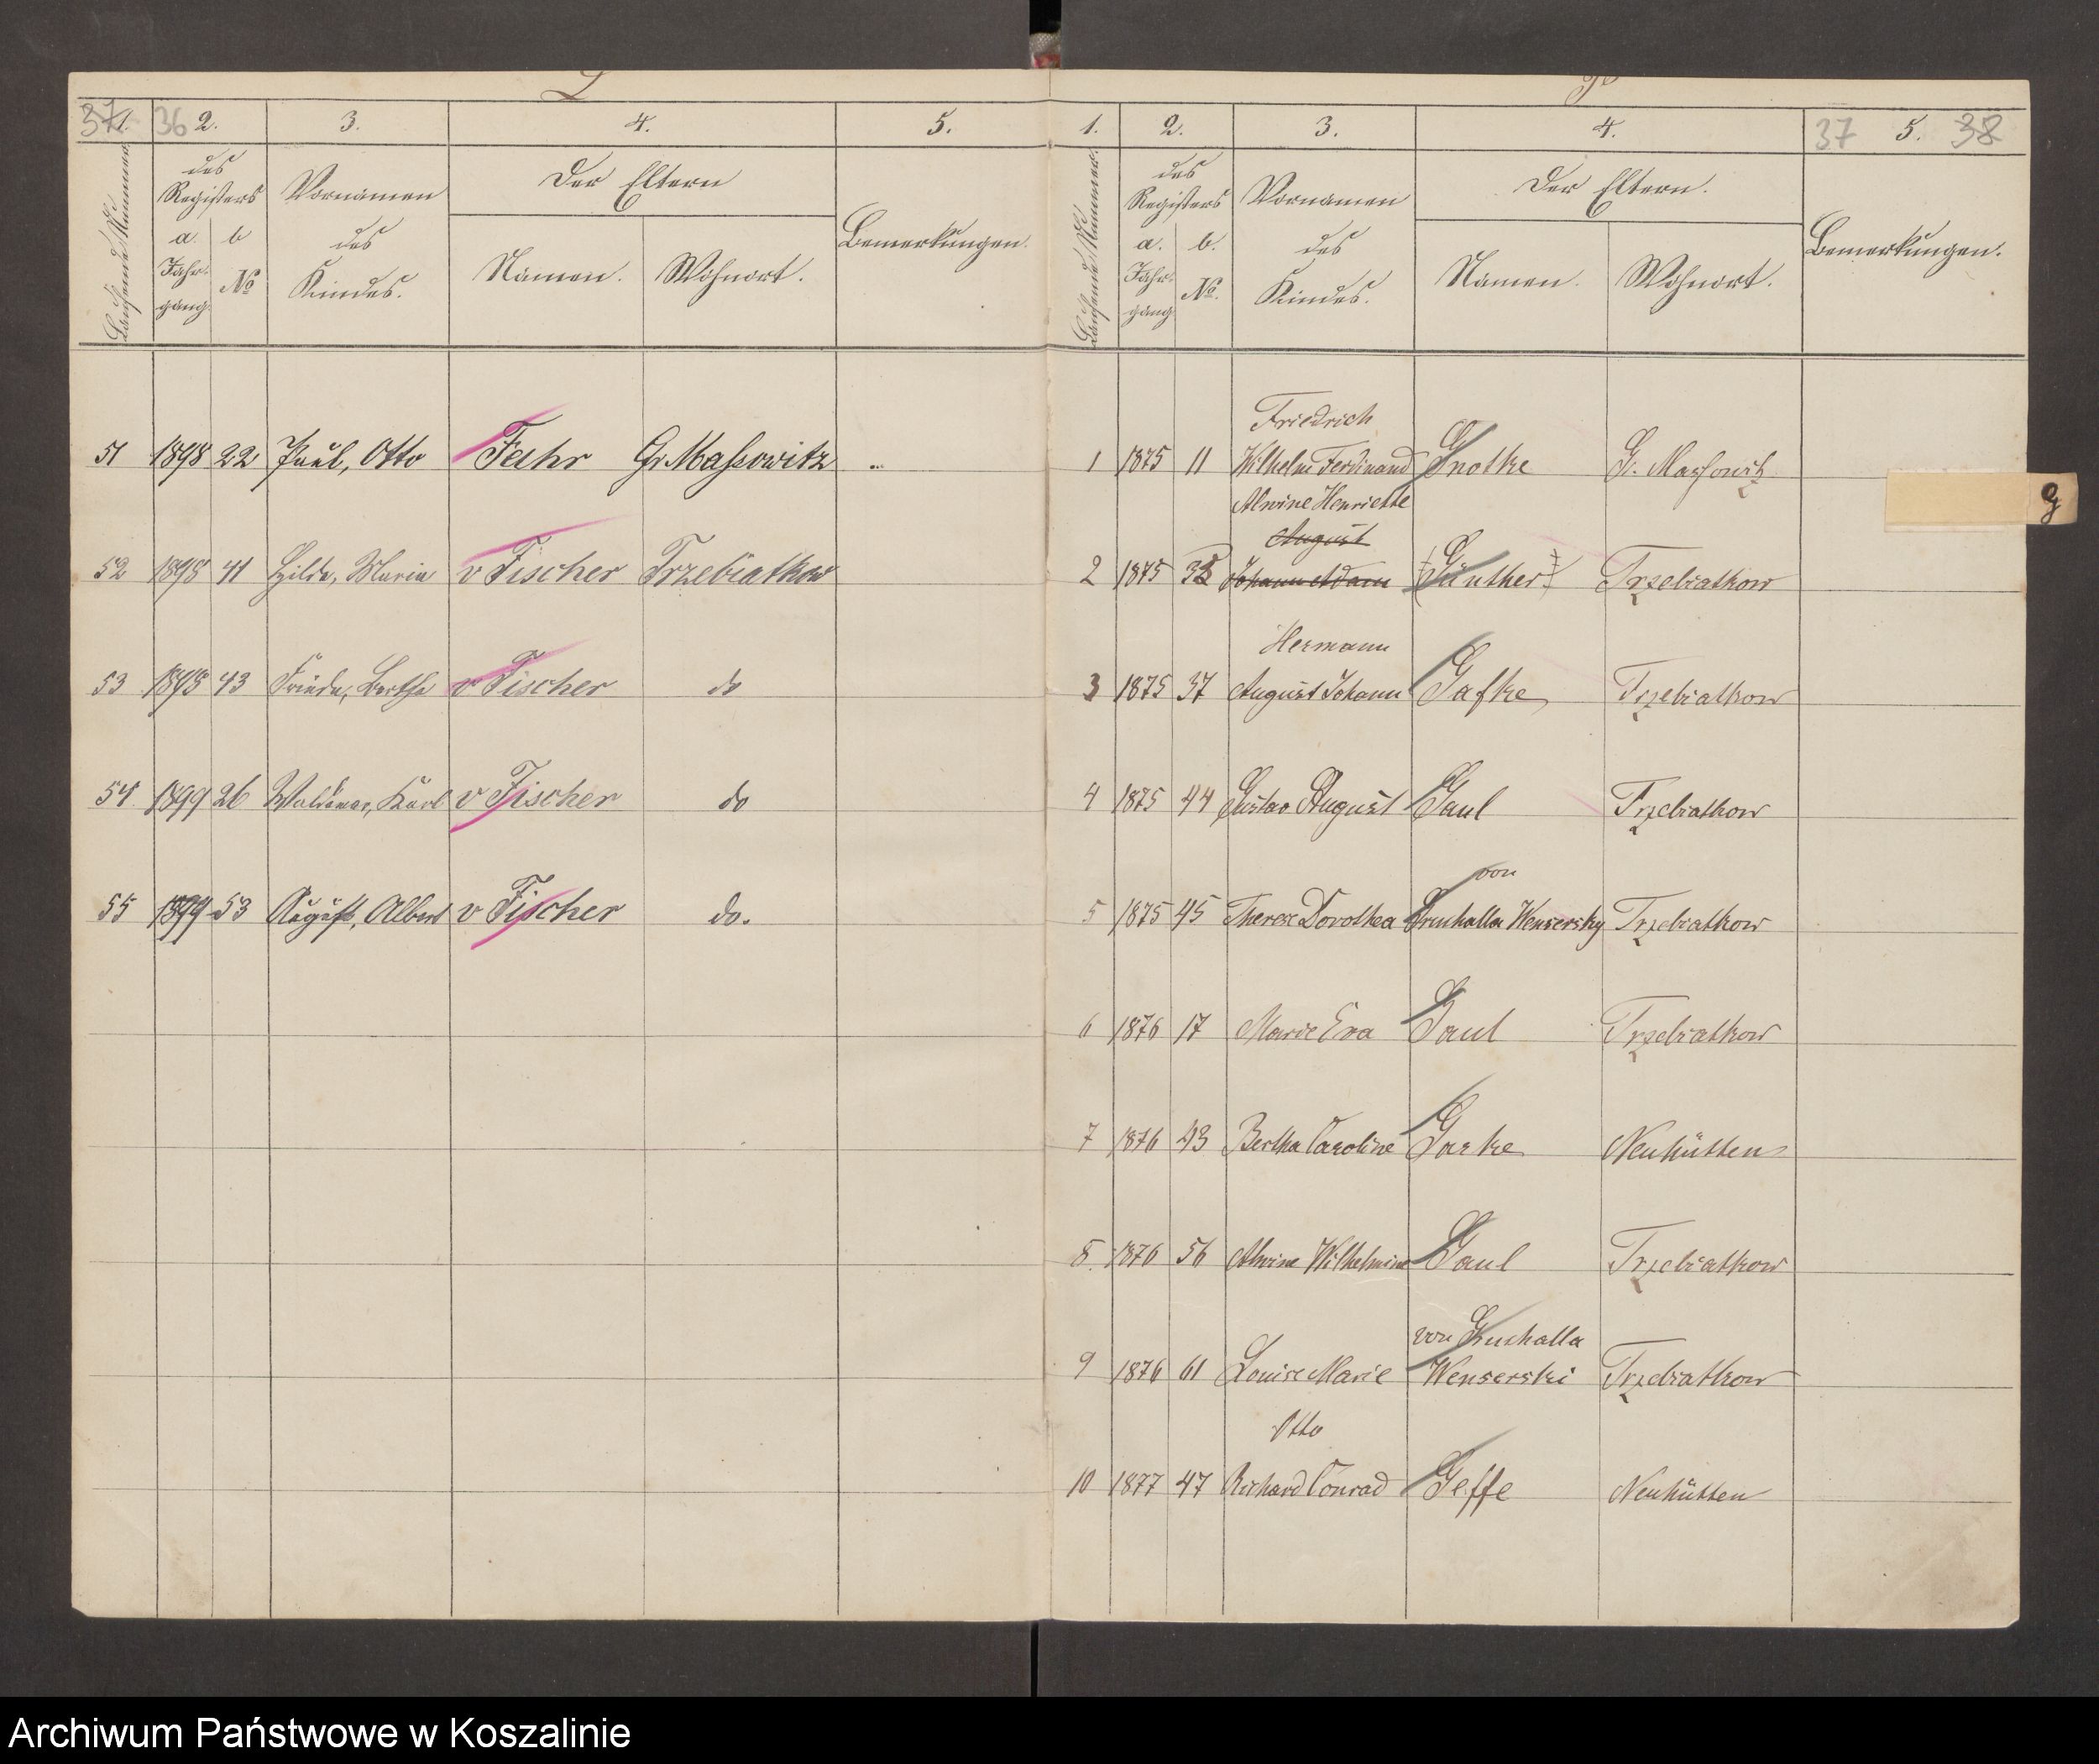 37 1. 36 2. 3. 4. 5.
Laufende Nummer
des Registers
Vornamen des Kindes.
Der Eltern
Bemerkungen.
a. Jahr-gang.
b №
Namen.
Wohnort.
51 1898 22 Paul, Otto Fehr Gr. Massowitz
52 1898 41 Hilda, Maria v Fischer Trzebiatkow
53 1898 43 Frieda, Bertha v Fischer do
54 1899 26 Waldemar, Karl v Fischer do
55 1899 53 August, Albert v Fischer do.
1. 2. 3. 4. 37 5. 38
Laufende Nummer.
des Registers
Vornamen des Kindes.
Der Eltern.
Bemerkungen.
a. Jahr-gang
b. №.
Namen.
Wohnort.
g
Friedrich
1 1875 11 Wilhelm Ferdinand Gnotke G. Massowitz
Alwine Henriette
August
2 1875 Johann Adam Günther Trzebiatkow
Hermann
3 1875 37 August Johann Gafke Trzebiatkow
4 1875 44 Gustav August Gaul Trzebiatkow
von
5 1875 45 Therese Dorothea Wensersky Trzebiatkow
6 1876 17 Marie Eva Gaul Trzebiatkow
7 1876 43 Bertha Caroline Garke Neuhütten
8 1876 56 Alwine Wilhelmine Gaul Trzebiatkow
von
9 1876 61 Louise Marie Wenserski Trzebiatkow
Otto
10 1877 47 Richard Conrad Geffe Neuhütten
Archiwum Państwowe w Koszalinie